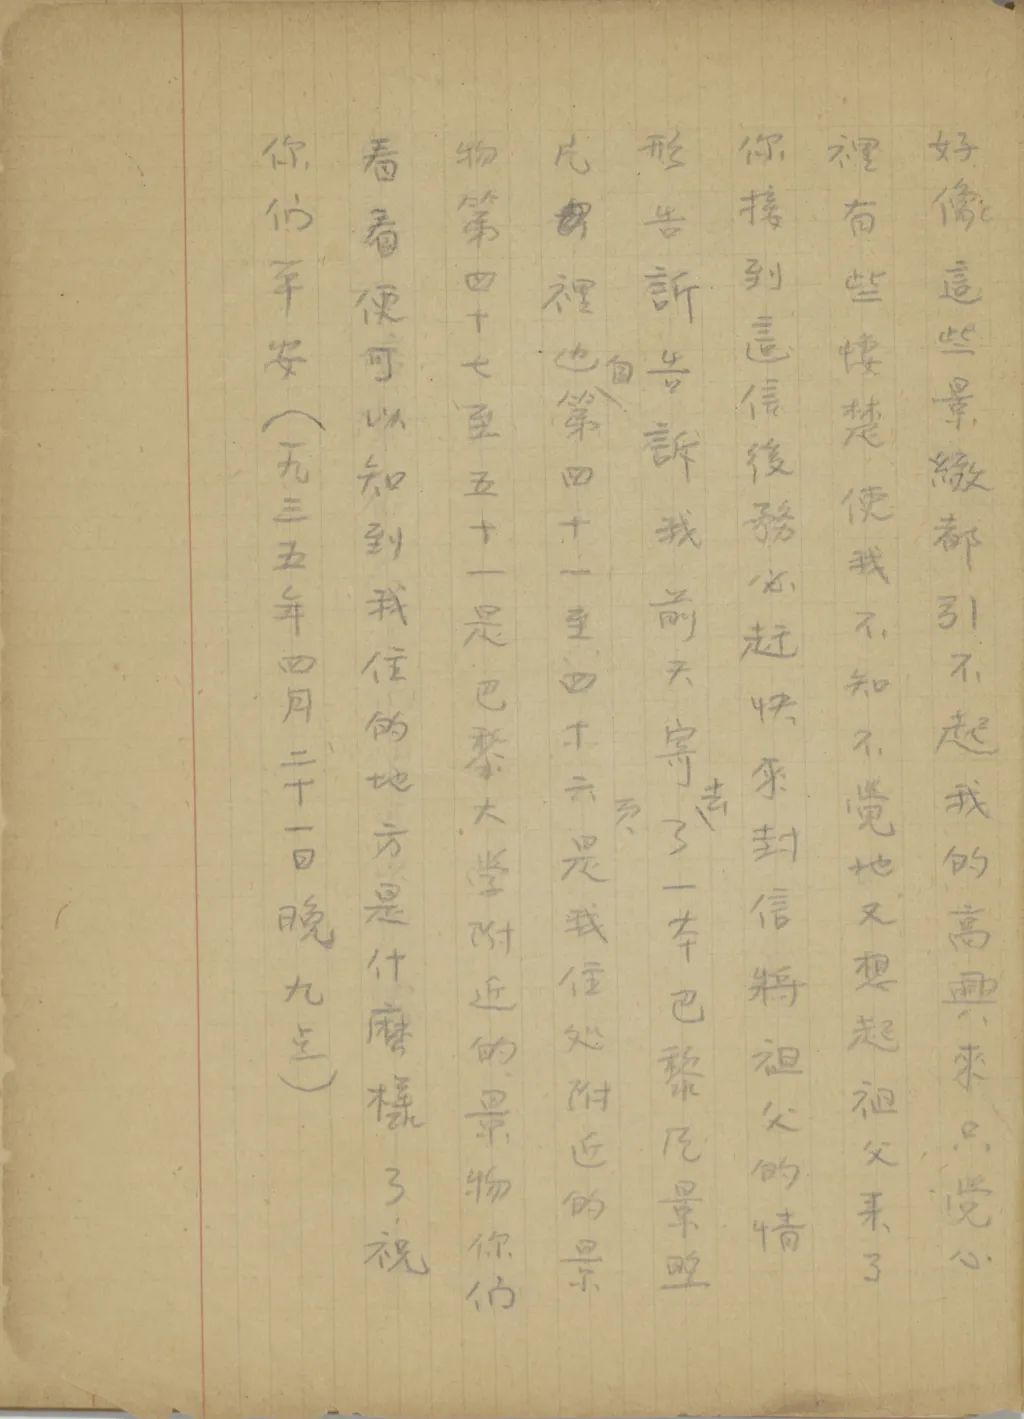 好像這些景緻都引不起我的高興來只覺心
裡有些悽楚使我不知不覺地又想起祖父来了
你接到這信後務必赶快來封信將祖父的情
形告訴告訴我前天寄去了一本巴黎风景照
片裡也自第四十一至四十六頁是我住处附近的景
物第四十七至五十一是巴黎大学附近的景物你们
看看便可以知到我住的地方是什麽樣了祝
你们平安(一九三五年四月二十一日晚九点)